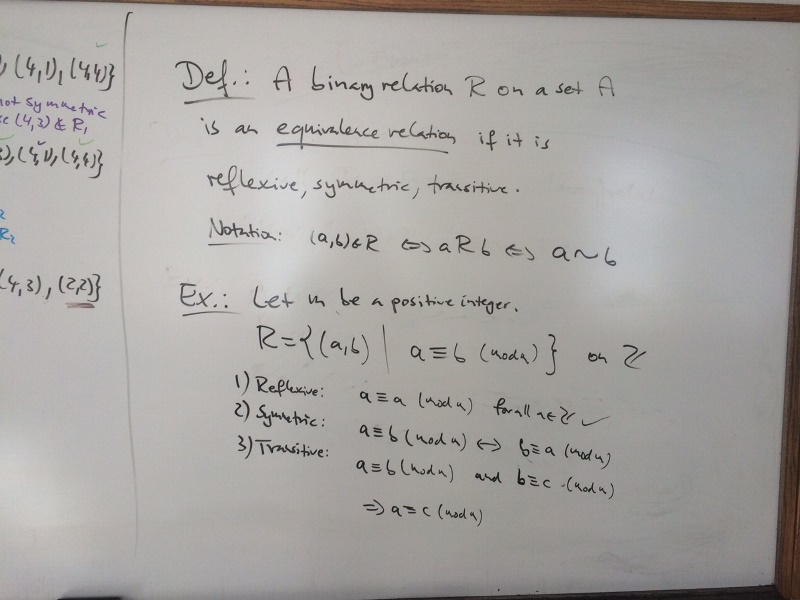 ), (4,1), (4,4)}
not symmetric
se (4,3) ∉ R₁
), (4,1), (4,4)}
2
R₂
(4,3), (2,2)}
Def.: A binary relation R on a set A
is an equivalence relation if it is
reflexive, symmetric, transitive.
Notation: (a,b)∈R ⇔ aRb ⇔ a~b
Ex.: Let m be a positive integer.
R={(a,b) | a≡b (mod m)} on ℤ
1) Reflexive: a≡a (mod m) for all a∈ℤ ✓
2) Symmetric: a≡b (mod m) ↔ b≡a (mod m)
3) Transitive: a≡b (mod m) and b≡c (mod m)
⇒ a≡c (mod m)